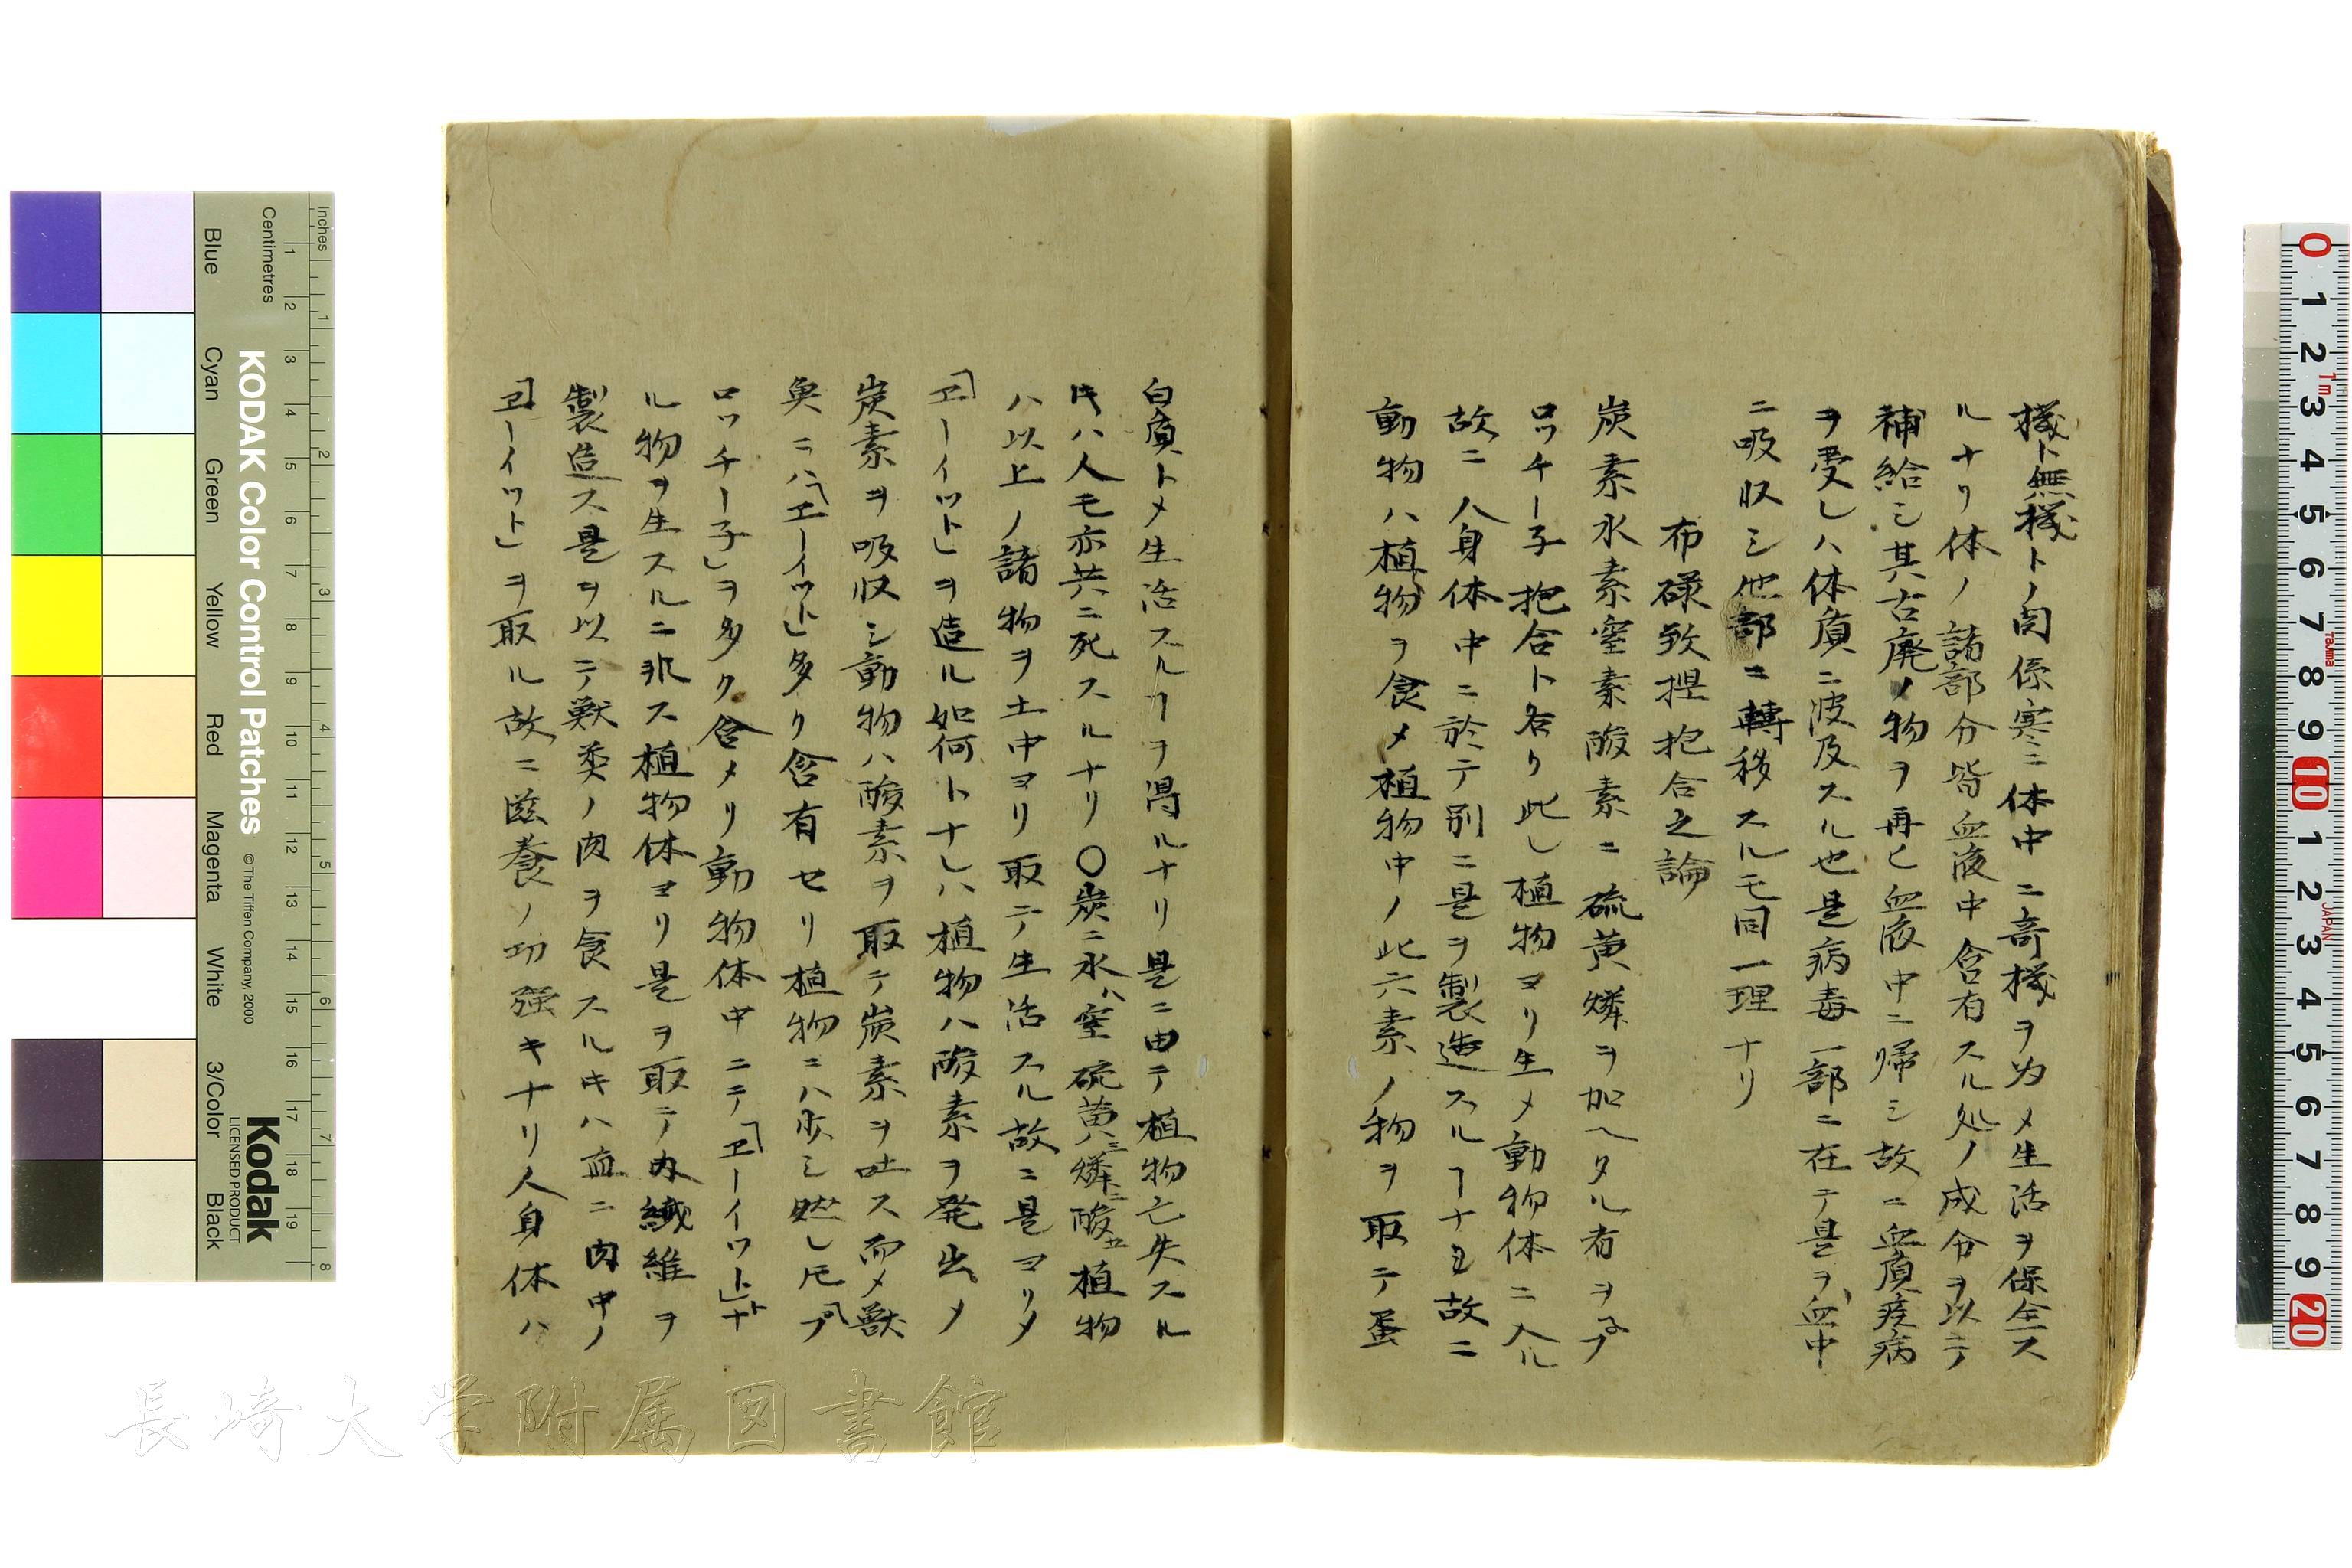 機ト無機トノ関係寔ニ体中ニ奇機ヲ為メ生活ヲ保全ス
ルナリ体ノ諸部分皆血液中含有スル処ノ成分ヲ以テ
補給シ其古廃ノ物ヲ再ヒ血液中ニ帰シ故ニ血質疾病
ヲ受レハ体質ニ波及スル也是病毒一部ニ在テ是ヲ血中
ニ吸収シ他部ニ轉移スルモ同一理ナリ
布碌致捏抱合之論
炭素水素窒素酸素ニ硫黄燐ヲ加ヘタル者ヲプ
ロッチー子抱合ト名ク此レ植物ヨリ生メ動物体ニ入ル
故ニ人身体中ニ於テ別ニ是ヲ製造スルヿナシ故ニ
動物ハ植物ヲ食メ植物中ノ此六素ノ物ヲ取テ蛋
白質トメ生活スルヿヲ得ルナリ是ニ由テ植物亡失スル
キハ人モ亦共ニ死スルナリ〇炭ニ水ハ窒硫黄ハ三燐ニ酸五植物
ハ以上ノ諸物ヲ土中ヨリ取テ生活スル故ニ是ヨリメ
「ヱーイット」ヲ造ル如何トナレハ植物ハ酸素ヲ発出メ
炭素ヲ吸収シ動物ハ酸素ヲ取テ炭素ヲ吐ス而メ獣
奥ニハ「ヱーイット」多ク含有セリ植物ニハ少シ然レ𪜈「プ
ロッチー子」ヲ多ク含メリ動物体中ニテ「ヱーイット」トナ
ル物ヲ生スルニ非ス植物体ヨリ是ヲ取テ内繊維ヲ
製造ス是ヲ以テ獣类ノ肉ヲ食スルキハ血ニ肉中ノ
「ヱーイット」ヲ取ル故ニ滋養ノ功強キナリ人身体ハ
Inches
Centimetres
KODAK Color Control Patches
© The Tiffen Company, 2000
Kodak
LICENSED PRODUCT
Blue Cyan Green Yellow Red Magenta White 3/Color Black
1 2 3 4 5 6 7 8 9 10 11 12 13 14 15 16 17 18 19
1 2 3 4 5 6 7 8
0 1 2 3 4 5 6 7 8 9 10 1 2 3 4 5 6 7 8 9 20
1m
Tajima
JAPAN
長崎大学附属図書館